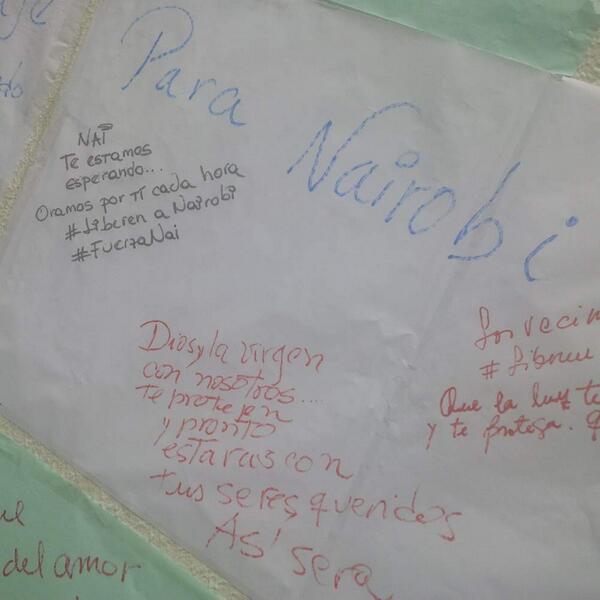 Para
Nairobi
NAI
Te estamos
esperando...
Oramos por TI cada hora
#Liberen a Nairobi
#FuerzaNai
Dios y la virgen
con nosotros...
te protejen
y pronto
estaras con
tus seres queridos
Así sera
Los vecin
#
Que la luz te
y te proteja.
del amor